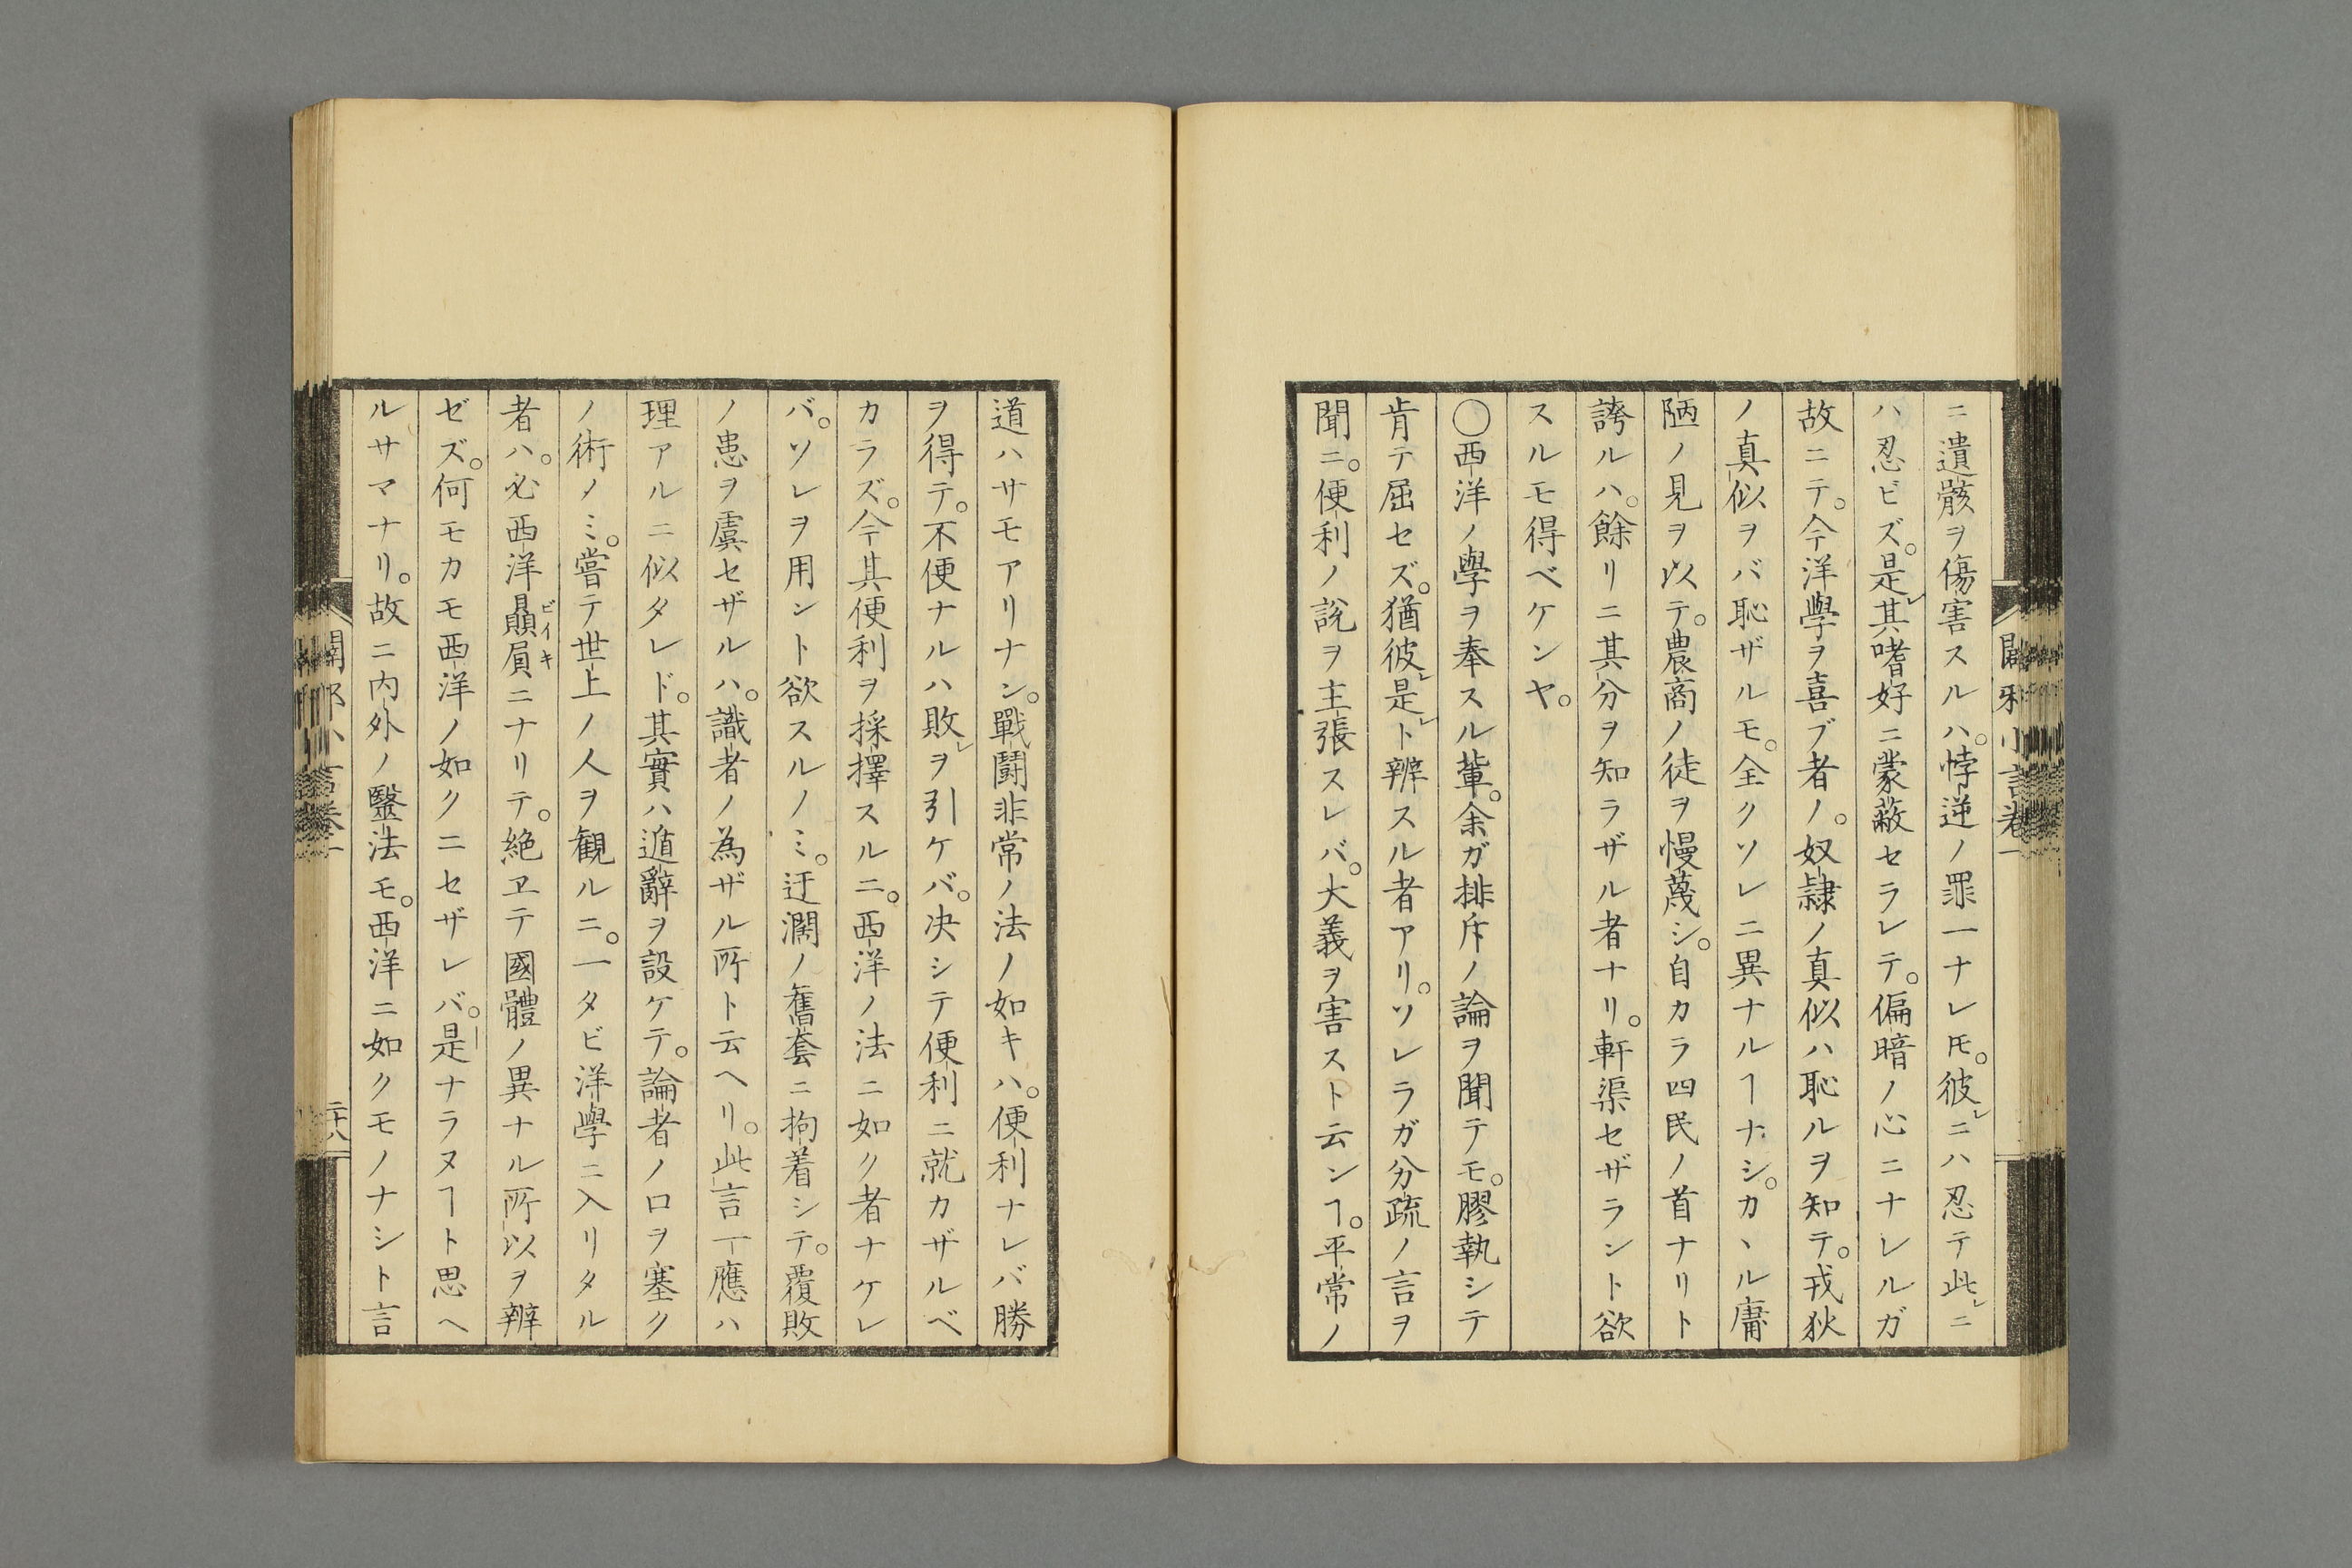 ニ遺骸ヲ傷害スルハ。悖逆ノ罪一ナレㇳモ。彼レニハ忍テ此レニ
ハ忍ビズ。是レ其嗜好ニ蒙蔽セラレテ。偏暗ノ心ニナレルガ
故ニテ。今洋學ヲ喜ブ者ノ。奴隷ノ真似ハ恥ルヲ知テ。戎狄
ノ真似ヲバ恥ザルモ。全クソレニ異ナルヿナシ。カヽル庸
陋ノ見ヲ以テ。農商ノ徒ヲ慢蔑シ。自カラ四民ノ首ナリト
誇ルハ。餘リニ其分ヲ知ラザル者ナリ。軒渠セザラント欲
スルモ得ベケンヤ。
○西洋ノ學ヲ奉スル輩。余ガ排斥ノ論ヲ聞テモ。膠執シテ
肯テ屈セズ。猶彼レ是レト辨スル者アリ。ソレラガ分疏ノ言ヲ
聞ニ。便利ノ說ヲ主張スレバ。大義ヲ害スト云ンヿ。平常ノ
闢邪小言卷一
道ハサモアリナン。戰鬪非常ノ法ノ如キハ。便利ナレバ勝
ヲ得テ。不便ナルハ敗レヲ引ケバ。决シテ便利ニ就カザルベ
カラズ。今其便利ヲ採擇スルニ。西洋ノ法ニ如ク者ナケレ
バ。ソレヲ用ント欲スルノミ。迂濶ノ舊套ニ拘着シテ。覆敗
ノ患ヲ虞セザルハ。識者ノ為ザル所ト云ヘリ。此言一應ハ
理アルニ似タレド。其實ハ遁辭ヲ設ケテ。論者ノ口ヲ塞ク
ノ術ノミ。嘗テ世上ノ人ヲ観ルニ。一タビ洋學ニ入リタル
者ハ。必西洋贔屓ビイキニナリテ。絶ヱテ國體ノ異ナル所以ヲ辨
ゼズ。何モカモ西洋ノ如クニセザレバ。是ナラヌヿト思ヘ
ルサマナリ。故ニ内外ノ醫法モ。西洋ニ如クモノナシト言
闢邪小言卷一
二十八